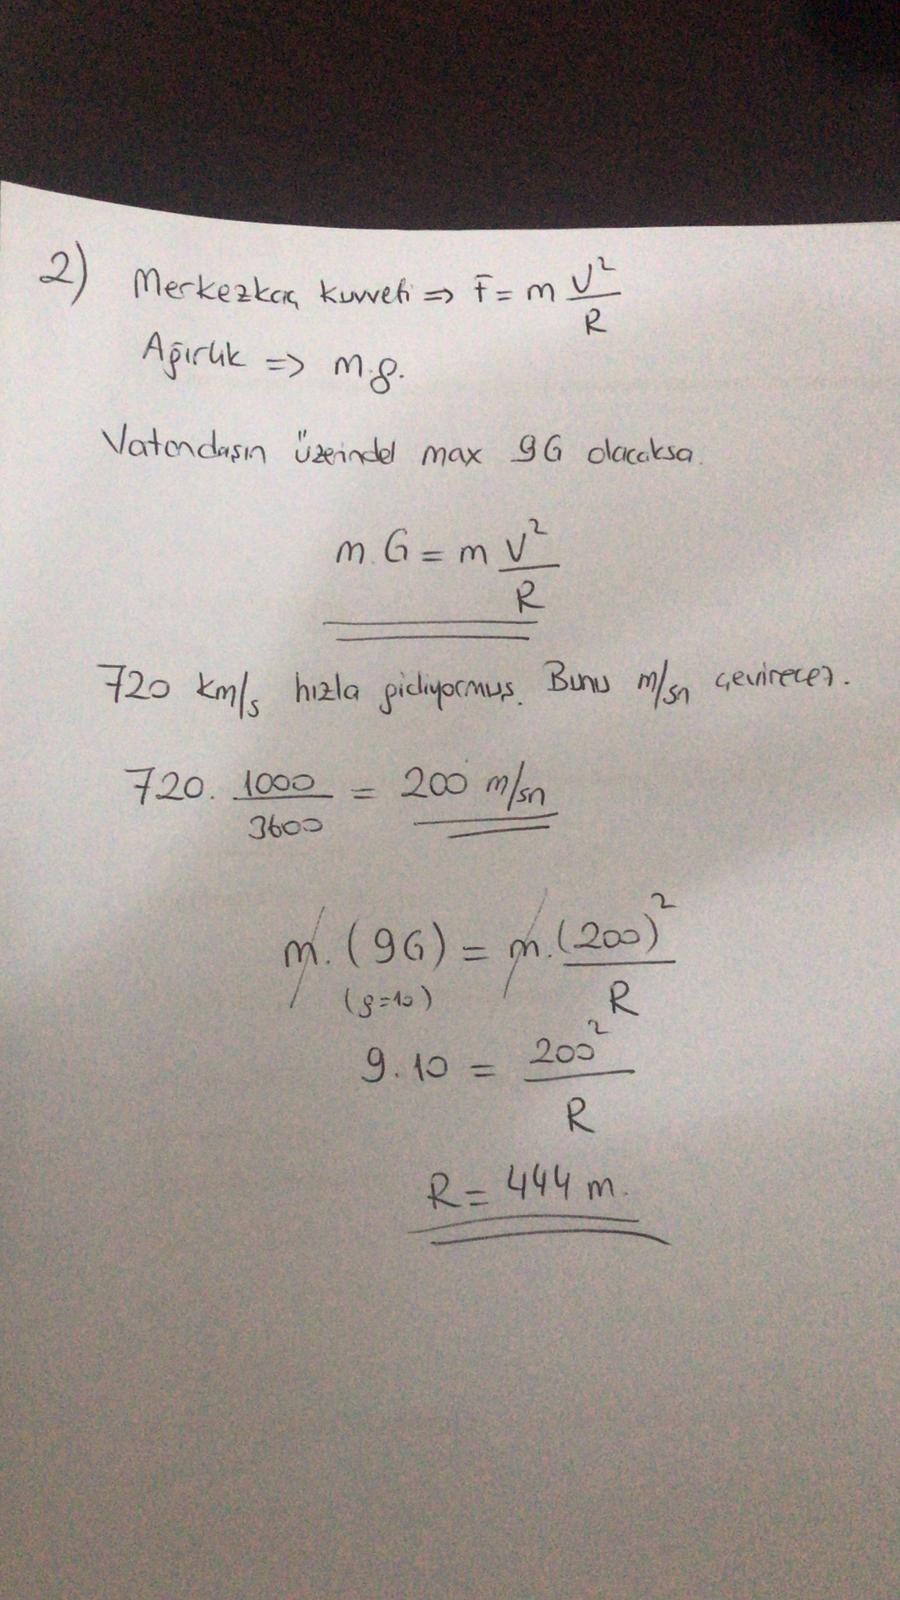 2) Merkezkaç kuvveti => F = m V²/R
Ağırlık => m.g.
Vatandaşın üzerindeki max 9G olacaksa.
m.G = m V²/R
720 km/s hızla gidiyormuş. Bunu m/sn çevirecez.
720. 1000/3600 = 200 m/sn
m.(9G) = m.(200)²/R
(g=10)
9.10 = 200²/R
R = 444 m.